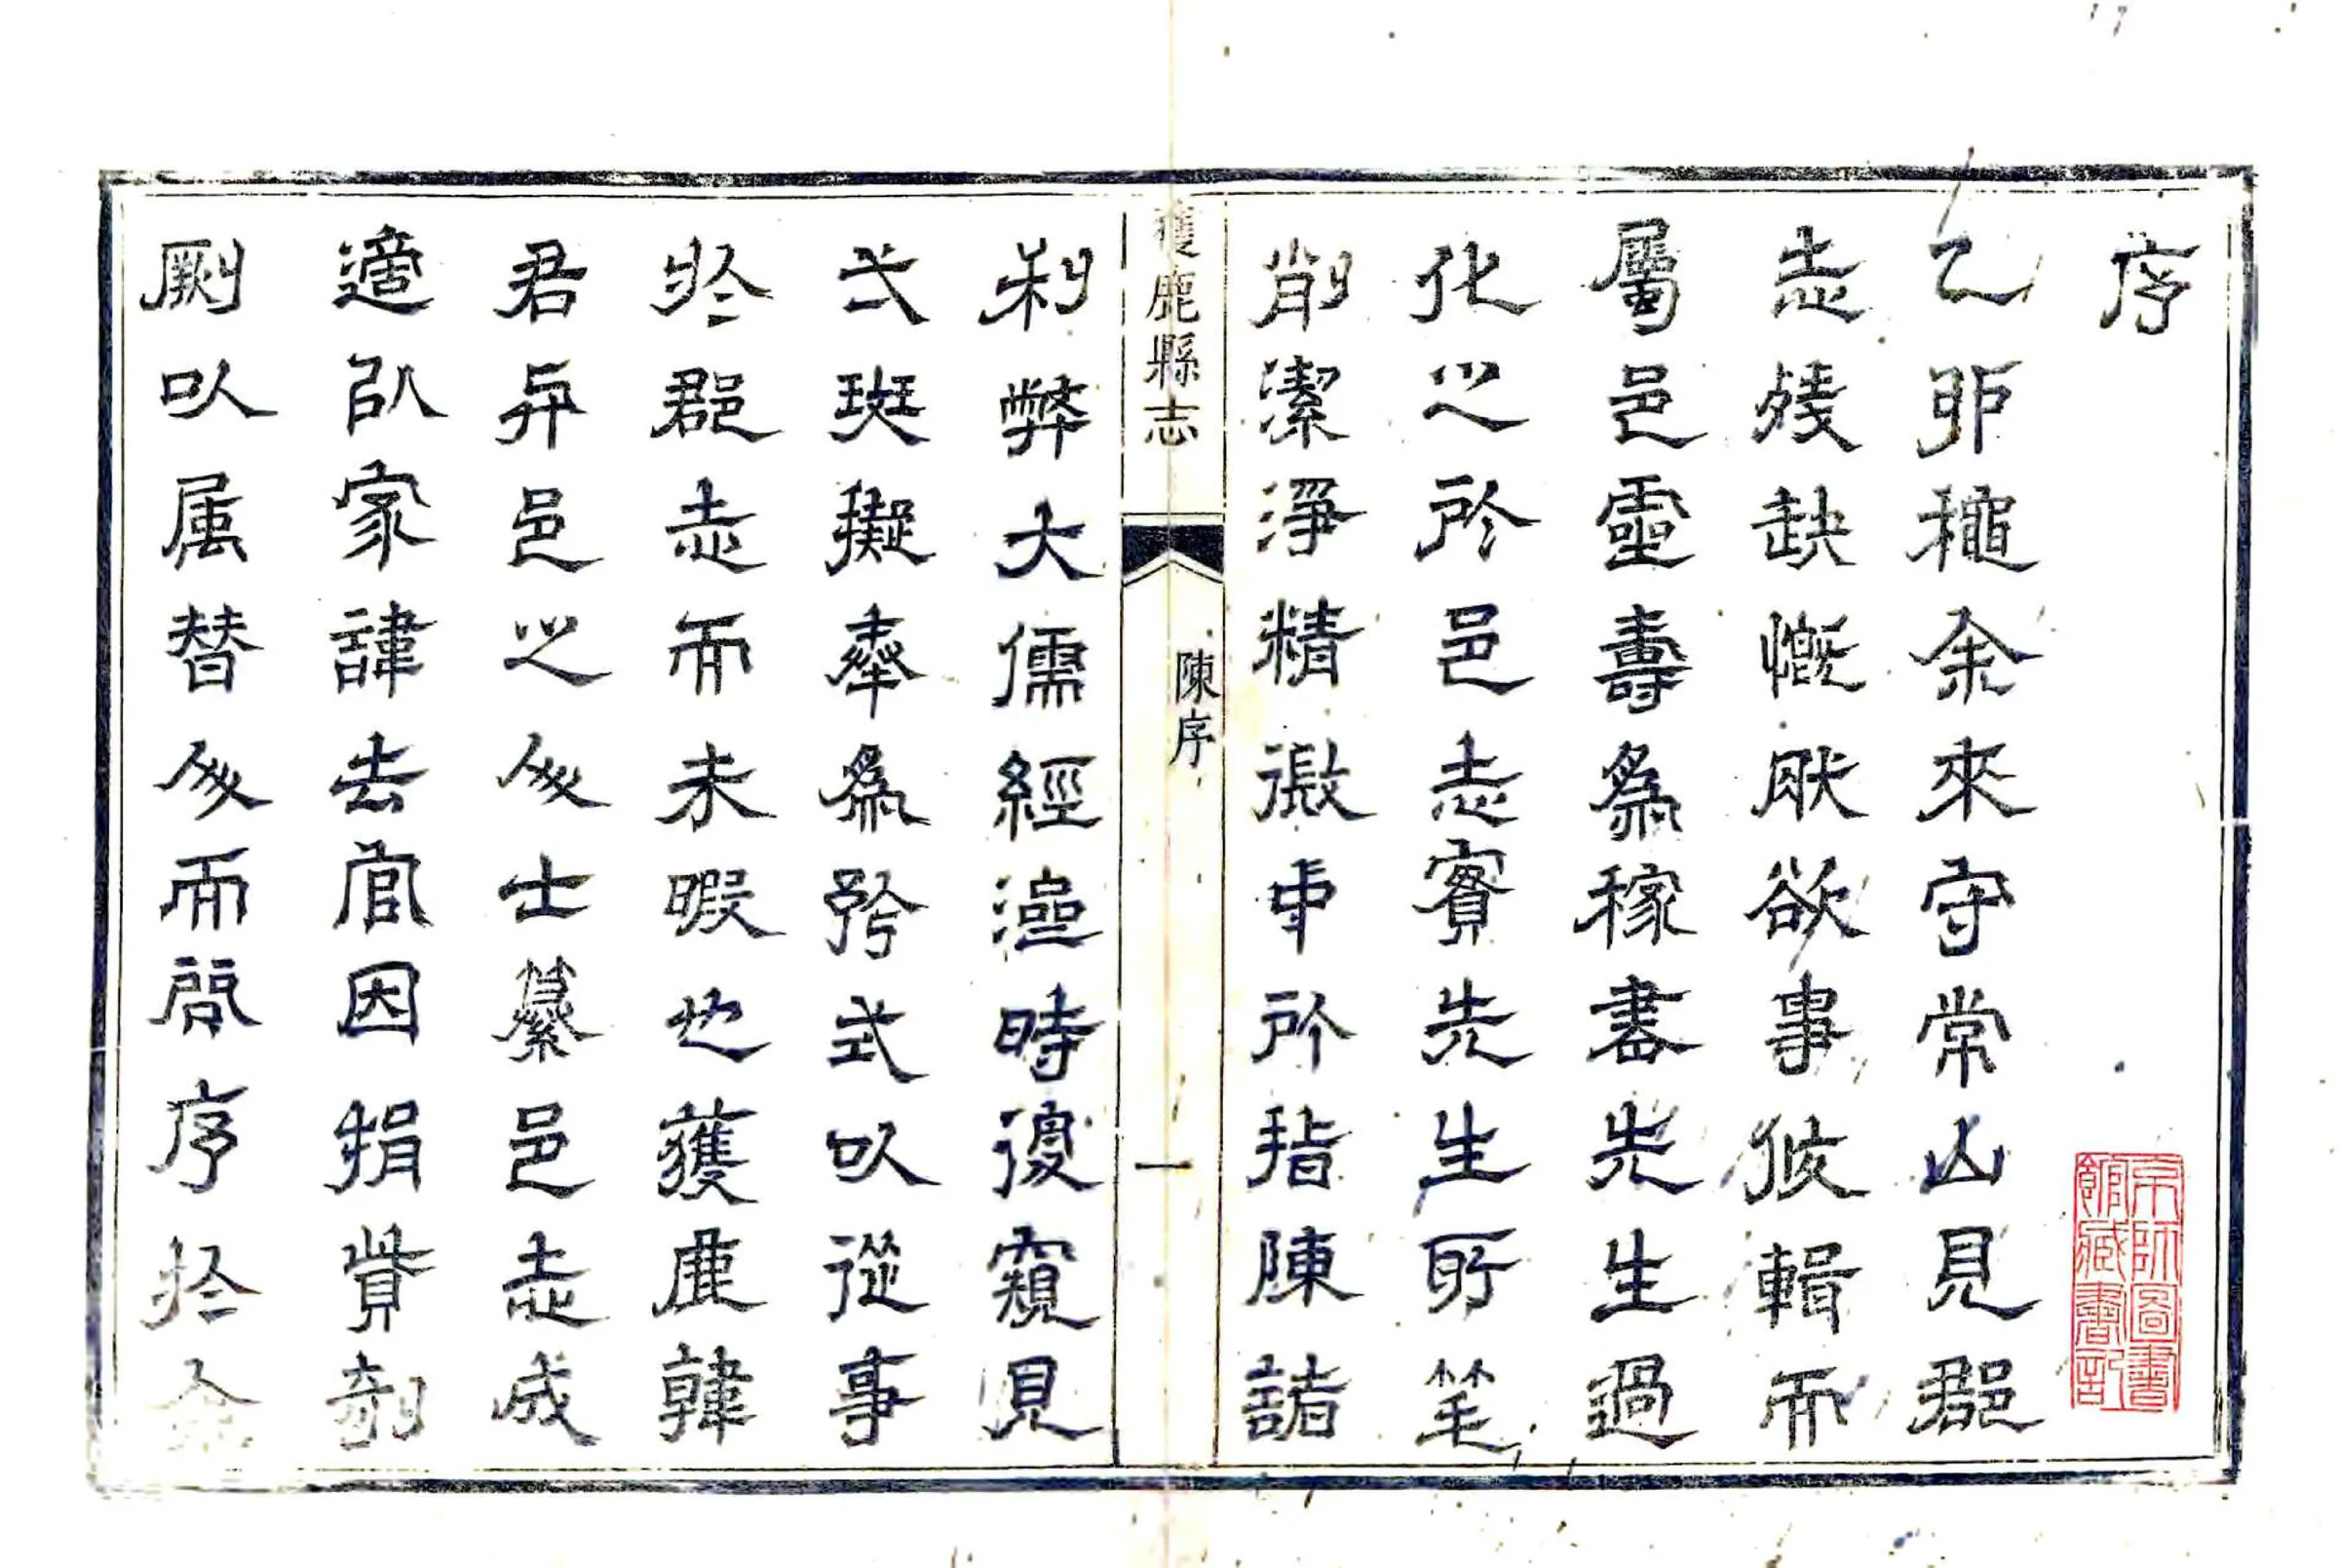 序
乙卯龝余來守常山見郡
志殘缺慨肰欲事攸輯而
屬邑靈壽為稼書先生過
化之所邑志實先生所筆
削潔淨精微中所指陳諸
獲鹿縣志
陳序
一
利弊大儒經濟時復窺見
弌斑擬奉為矜式以從事
於郡志而未暇也獲鹿韓
君與邑之人士纂邑志成
適以家諱去官因捐貲剞
劂以屬替人而問序於余
京師圖書
館藏書記